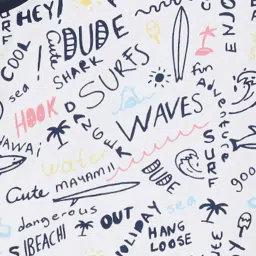 HEY!
DUDE
ENJOY
COOL
Cute
SHARK
SURFS
sea
fun
Adventure
HOOK
DANGER
WAVES
HAWAI
water
SURF
DUDE
Cute
MAYAMI
goo
dangerous
OUT
HOLIDAY
sea
BEACH!
HANG
LOOSE